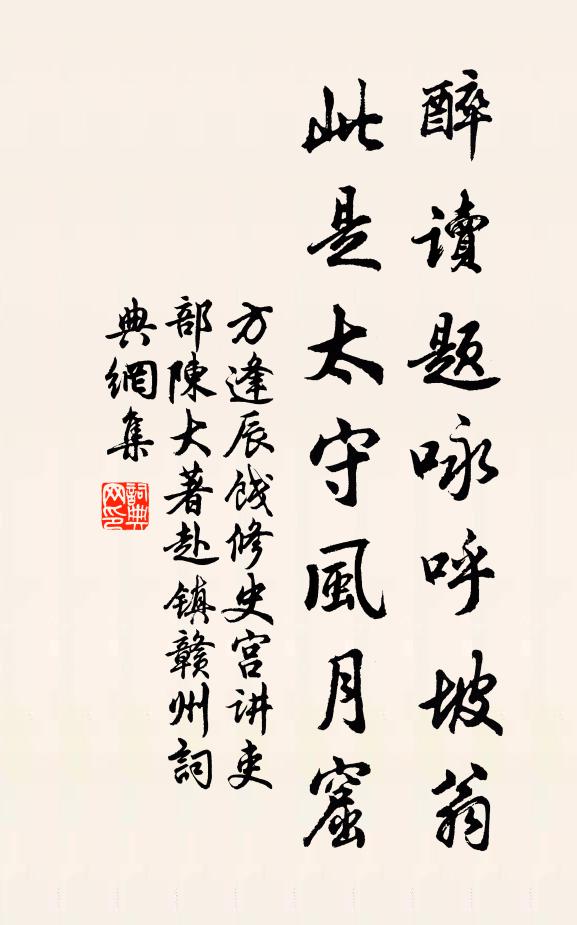 醉讀題咏呼坡翁
此是太守風月窟
方逢辰餞修史宫讲吏
部陳大著赴镇赣州詞
典網集
詞典网印